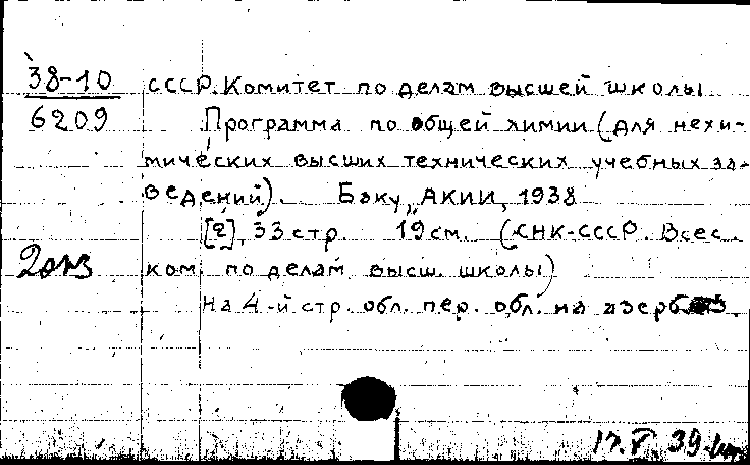 38-10
6209
СССР. Комитет по делам высшей школы
Программа по общей химии (для нехи-
мических высших технических учебных за-
ведений). Баку, "АКИИ, 1938
[2], 33 стр. 19 см. (СНК-СССР. Всес.
ком. по делам высш. школы)
На 4-й стр. обл. пер. обл. на азерб.
17.V.39